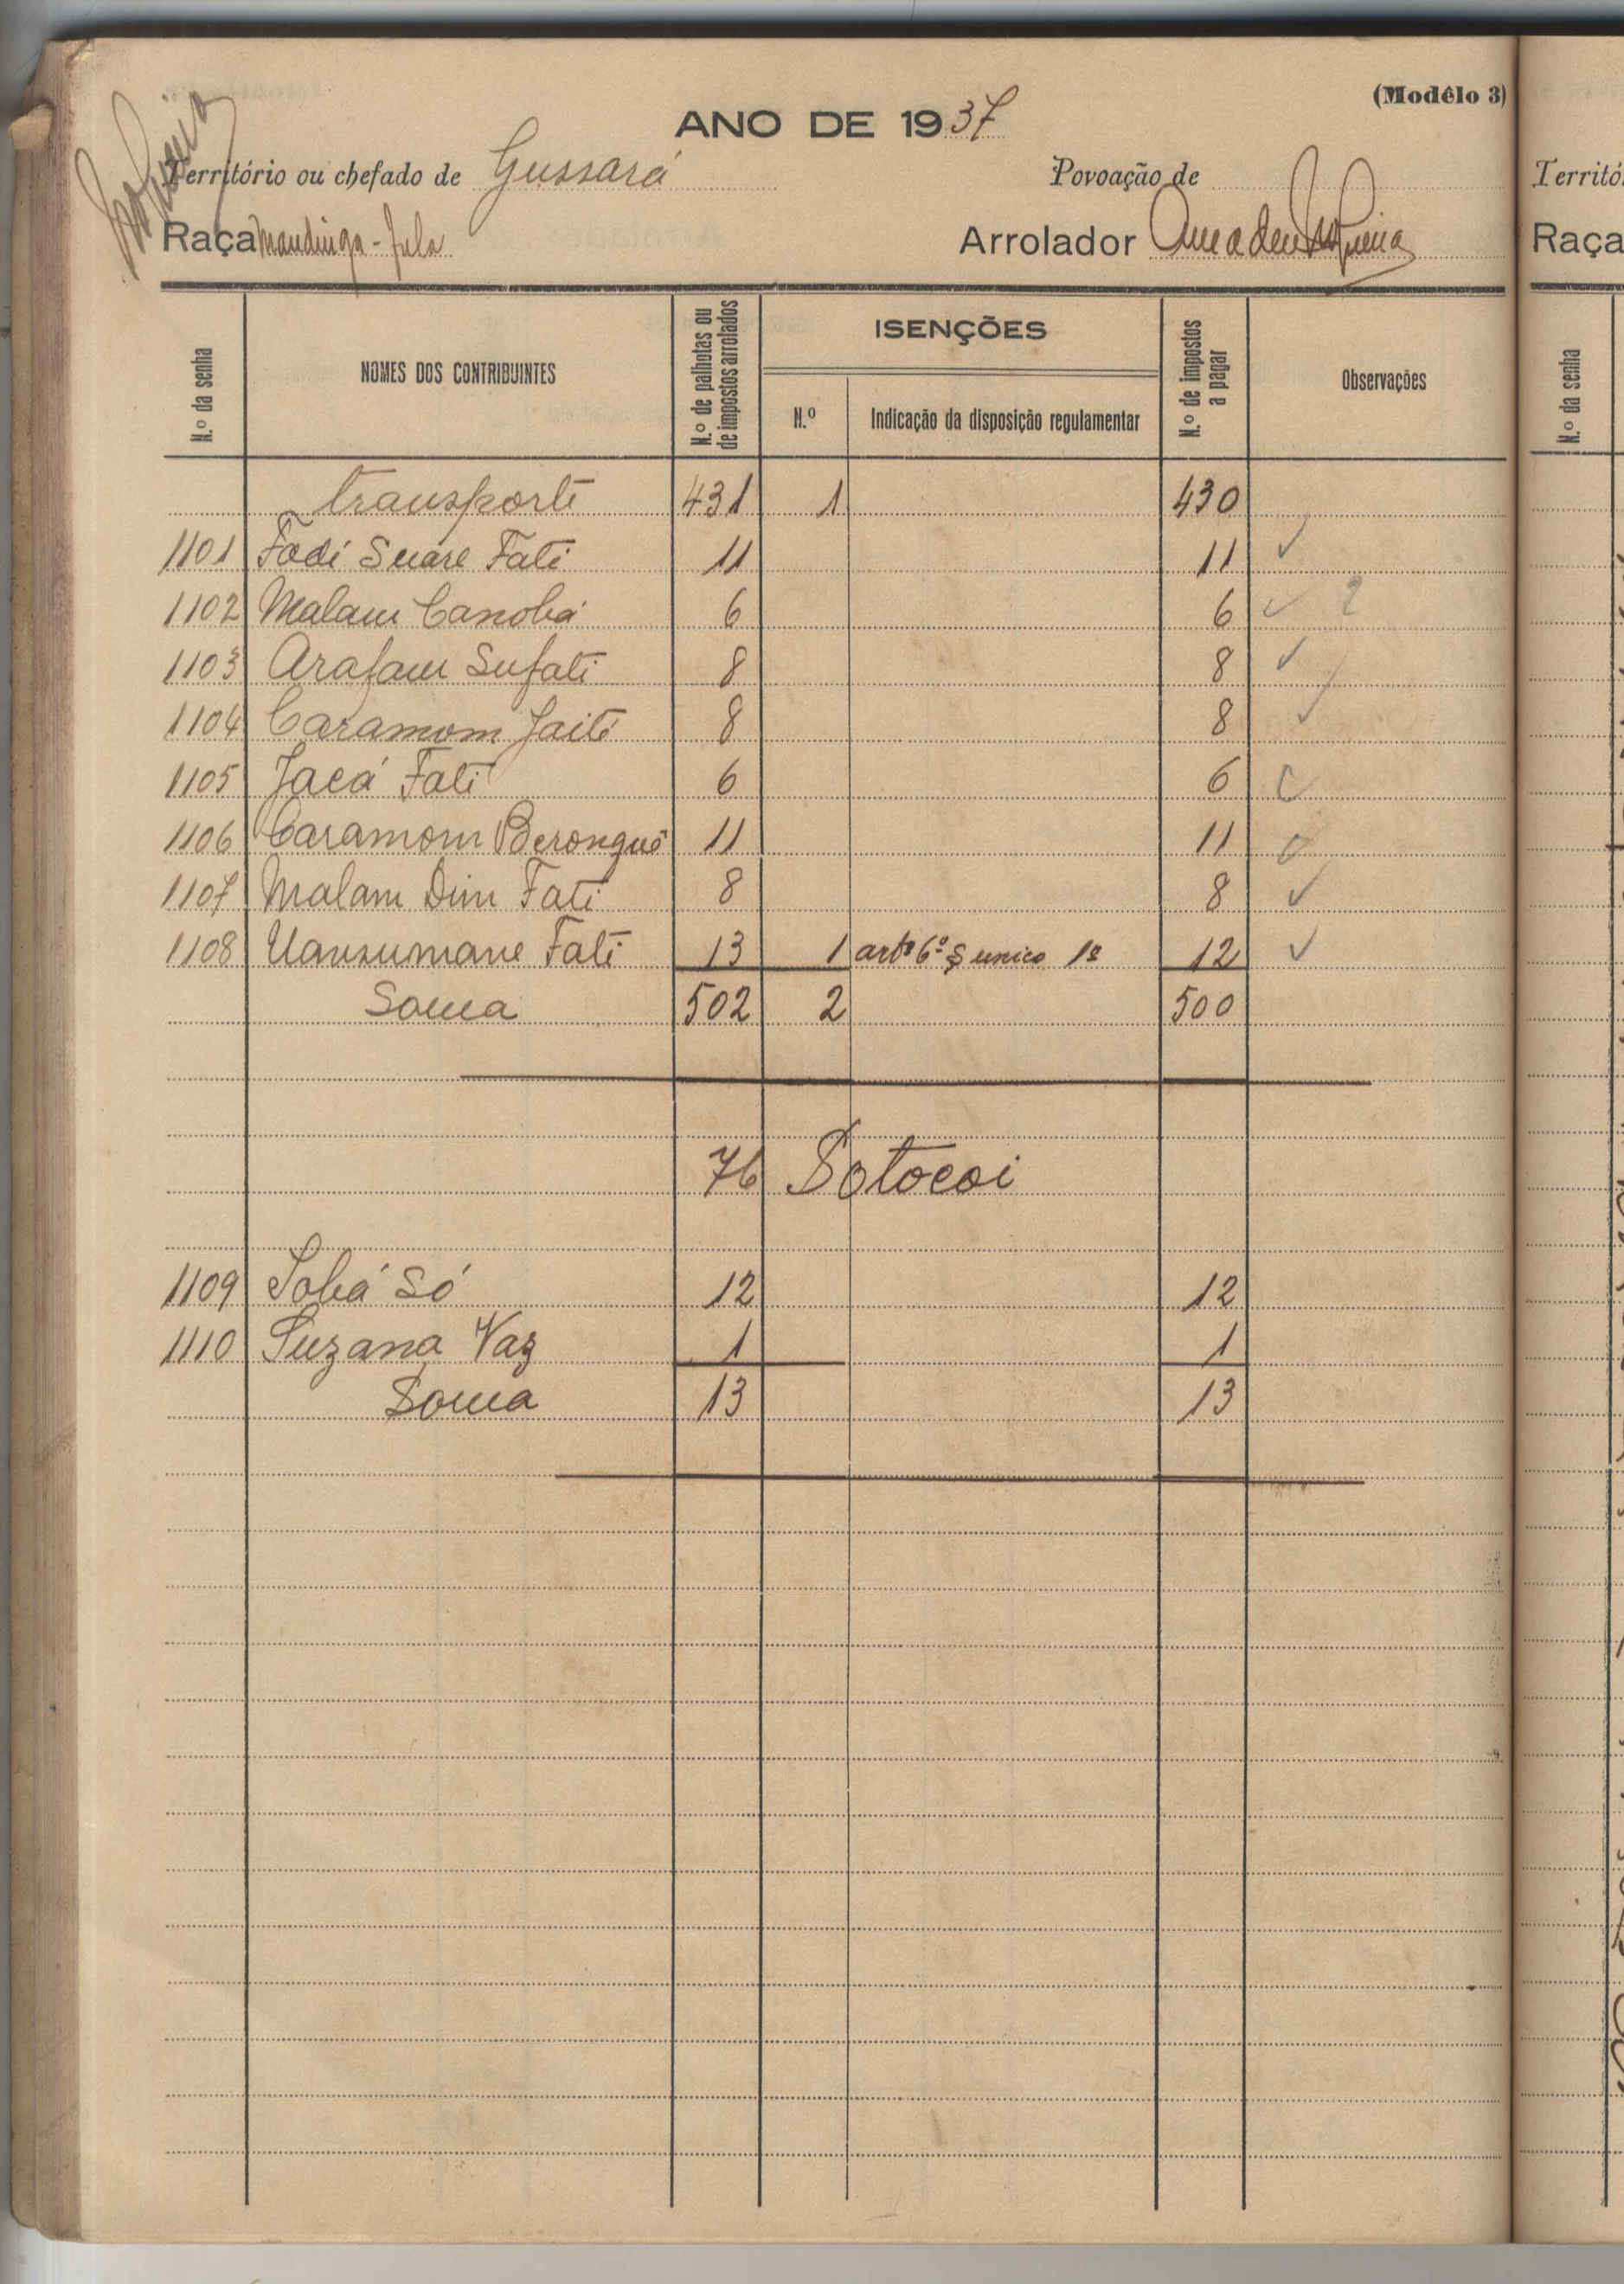 (Modêlo 3)
ANO DE 1937
Território ou chefado de Gussará Povoação de
Raça Mandinga-Fula Arrolador Amadeu Nogueira
N.º da senha NOMES DOS CONTRIBUINTES N.º de palhotas ou de impostos arrolados ISENÇÕES N.º Indicação da disposição regulamentar N.º de impostos a pagar Observações
transporte 431 1 430
1101 Fodi Suare Fati 11 11 ✓
1102 Malam Canobá 6 6 ✓ ?
1103 Arafam Sufati 8 8 ✓
1104 Caramom Jaité 8 8 ✓
1105 Jacá Fati 6 6 C
1106 Caramom Berongué 11 11
1107 Malam Dim Fati 8 8 ✓
1108 Uansumane Fati 13 1 artº 6º § unico 1º 12 ✓
Soma 502 2 500
76 Sotocoi
1109 Sobá Só 12 12
1110 Suzana Vaz 1 1
Soma 13 13
Territó
Raça
N.º da senha